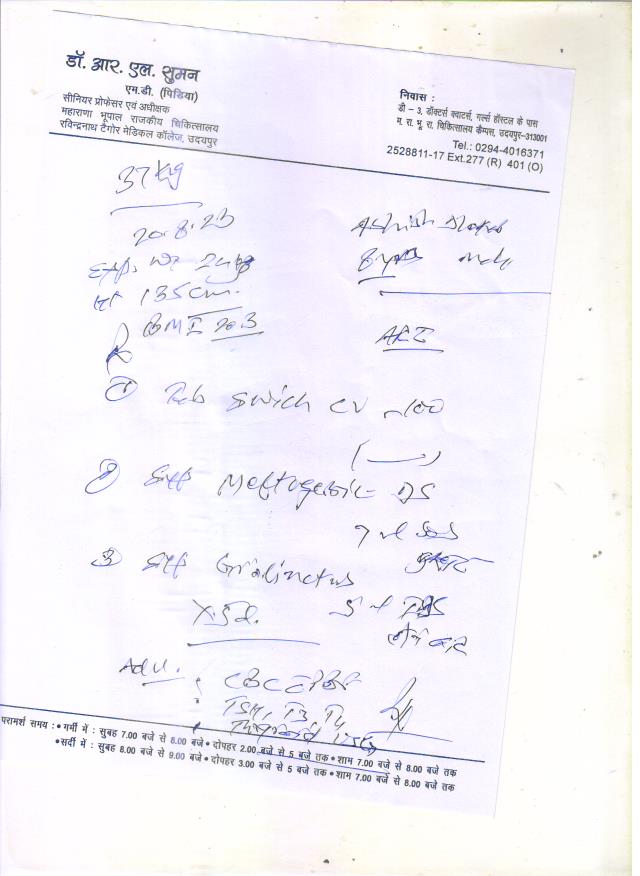 डॉ. आर. एल. सुमन
एम.डी. (पिडिया)
सीनियर प्रोफेसर एवं अधीक्षक
महाराणा भूपाल राजकीय चिकित्सालय
रविन्द्रनाथ टैगोर मेडिकल कॉलेज, उदयपुर
निवास :
डी – 3, डॉक्टर्स क्वाटर्स, गर्ल्स हॉस्टल के पास
म. रा. भू. रा. चिकित्सालय कैम्पस, उदयपुर–313001
Tel.: 0294-4016371
2528811-17 Ext.277 (R) 401 (O)
37 Kg
20.8.23
Ashish
Ht 135 cm.
BMI 20.3
① Tab Swich CV 100
② Syp Meftagesic DS
7 ml SOS
③ Syp Grilinctus
5 ml TDS
X 5d.
Adv.
CBC PBF
TSH, T3, T4
Thyroid USG
परामर्श समय : • गर्मी में : सुबह 7.00 बजे से 8.00 बजे • दोपहर 2.00 बजे से 5 बजे तक • शाम 7.00 बजे से 8.00 बजे तक
• सर्दी में : सुबह 8.00 बजे से 9.00 बजे • दोपहर 3.00 बजे से 5 बजे तक • शाम 7.00 बजे से 8.00 बजे तक